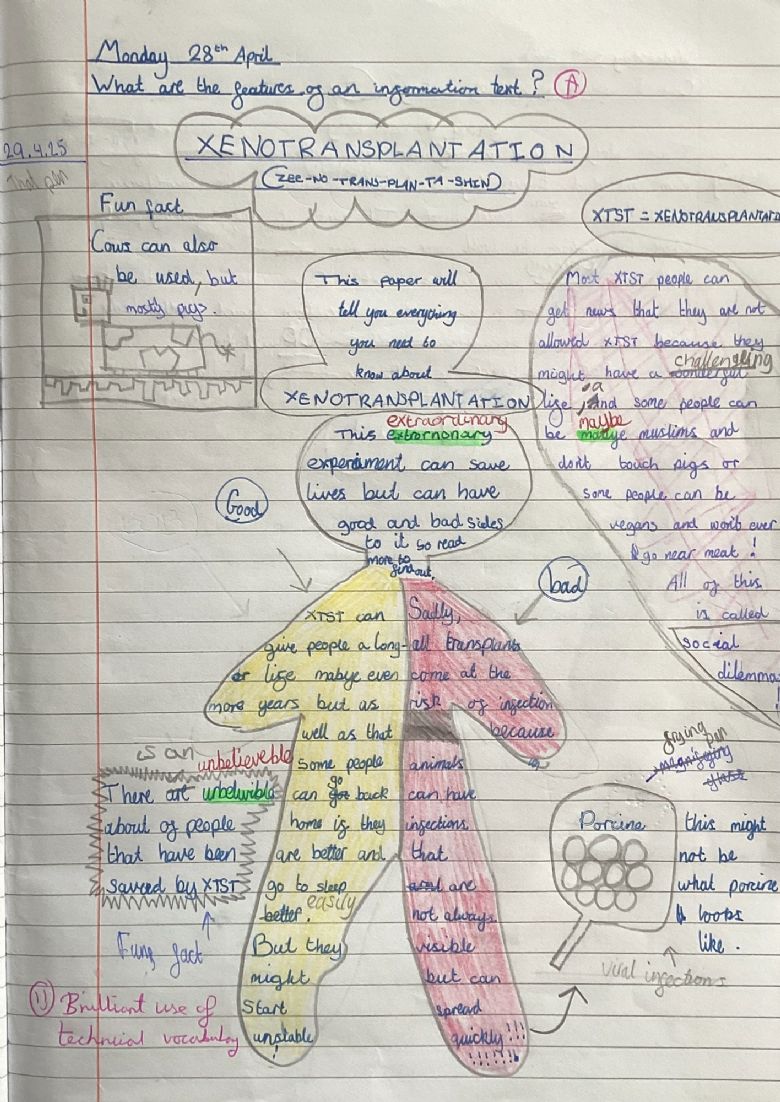 Monday 28th April
What are the features of an information text? A
29.4.25
That pen
XENOTRANSPLANTATION
(ZEE-NO-TRANS-PLAN-TA-SHIN)
Fun fact
Cows can also
be used, but
mostly pigs.
This paper will
tell you everything
you need to
know about
XENOTRANSPLANTATION
XTST = XENOTRANSPLANTATIO
Most XTST people can
get news that they are not
allowed XTST because they
challenging
might have a wonderful
life, a And some people can
maybe
be mabye muslims and
dont touch pigs or
some people can be
vegans and won't ever
go near meat!
All of this
is called
social
dilemma
extraordinary
This extrornonary
experiment can save
lives but can have
good and bad sides
to it so read
more to
find out.
Good
bad
XTST can
give people a long-
er life mabye even
more years but as
well as that
some people
can go back
home if they
are better and
go to sleep
easily
better.
But they
might
start
unstable
!
Sadly,
all transplants
come at the
risk of infection
because
animals
can have
infections
that
are
not always
visible
but can
spread
quickly!!!
!!!!!!
is an unbelieveble
There are unbelivible
about of people
that have been
saved by XTST
Fung fact
frying pan
magnifying
glass
Porcine
this might
not be
what porcine
looks
like.
viral infections
Brilliant use of
technical vocabulary